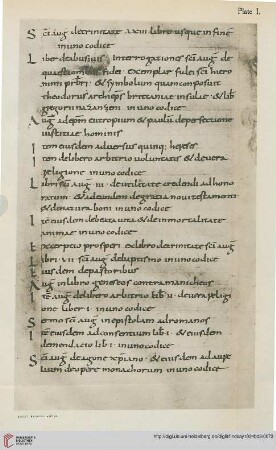 Plate I.
Sci aug de trinitate xxiii libro usque in fine
in uno codice
Liber de ebusius interrogationes sci aug de
questionibus fidei exemplar fidei sci hiero
nimi prbri & symbolum quam composuit
theodorus archieps brittaniae insulae & lib
gregorii nazanzeni in uno codice
Aug ad epm eutropium & paulu de perfectione
iustitiae hominis
Item eiusdem adversus quinq; hereses
Item de libero arbitrio voluntatis & de vera
religione in uno codice
Libri sci aug iii de utilitate credendi ad hono
ratum & ad eundem de gratia novi testamenti
& de natura boni in uno codice
Item eiusdem de beata vita & de inmortalitate
animae in uno codice
Excerptio prosperi ex libro de trinitate sci aug
libri vii sci aug de baptismo in uno codice
eiusdem de pastoribus
Aug in libro geneseos contra manicheus
Item aug de libero arbitrio lib ii de vera religi
one liber i in uno codice
Sermo sci aug in epistolam ad romanos
Item eiusdem ad consentium lib i & eiusdem
de mendacio lib i in uno codice
Sci aug de agone xpiano & eiusdem ad aure
lium de opere monachorum in uno codice